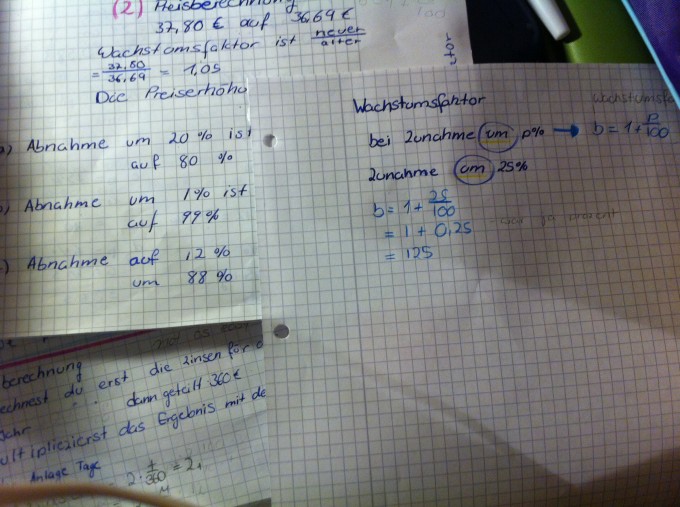 (2) Preisberechnung
37,80 € auf 36,69 €
Wachstumsfaktor ist neuer
alter
= 37,80
36,69 = 1,05
Die Preiserhöhu
a) Abnahme um 20 % ist
auf 80 %
Abnahme um 1% ist
auf 99%
c) Abnahme auf 12 %
um 88 %
berechnung
echnest du erst die Zinsen für
Jahr dann geteilt 360€
ultiplizierst das Ergebnis mit de
Anlage Tage
1
360 = 2,
100
Wachstumsfaktor
bei Zunahme um p% → b = 1 + p
100
Zunahme um 25%
b = 1 + 25
100
= 1 + 0,25
= 125